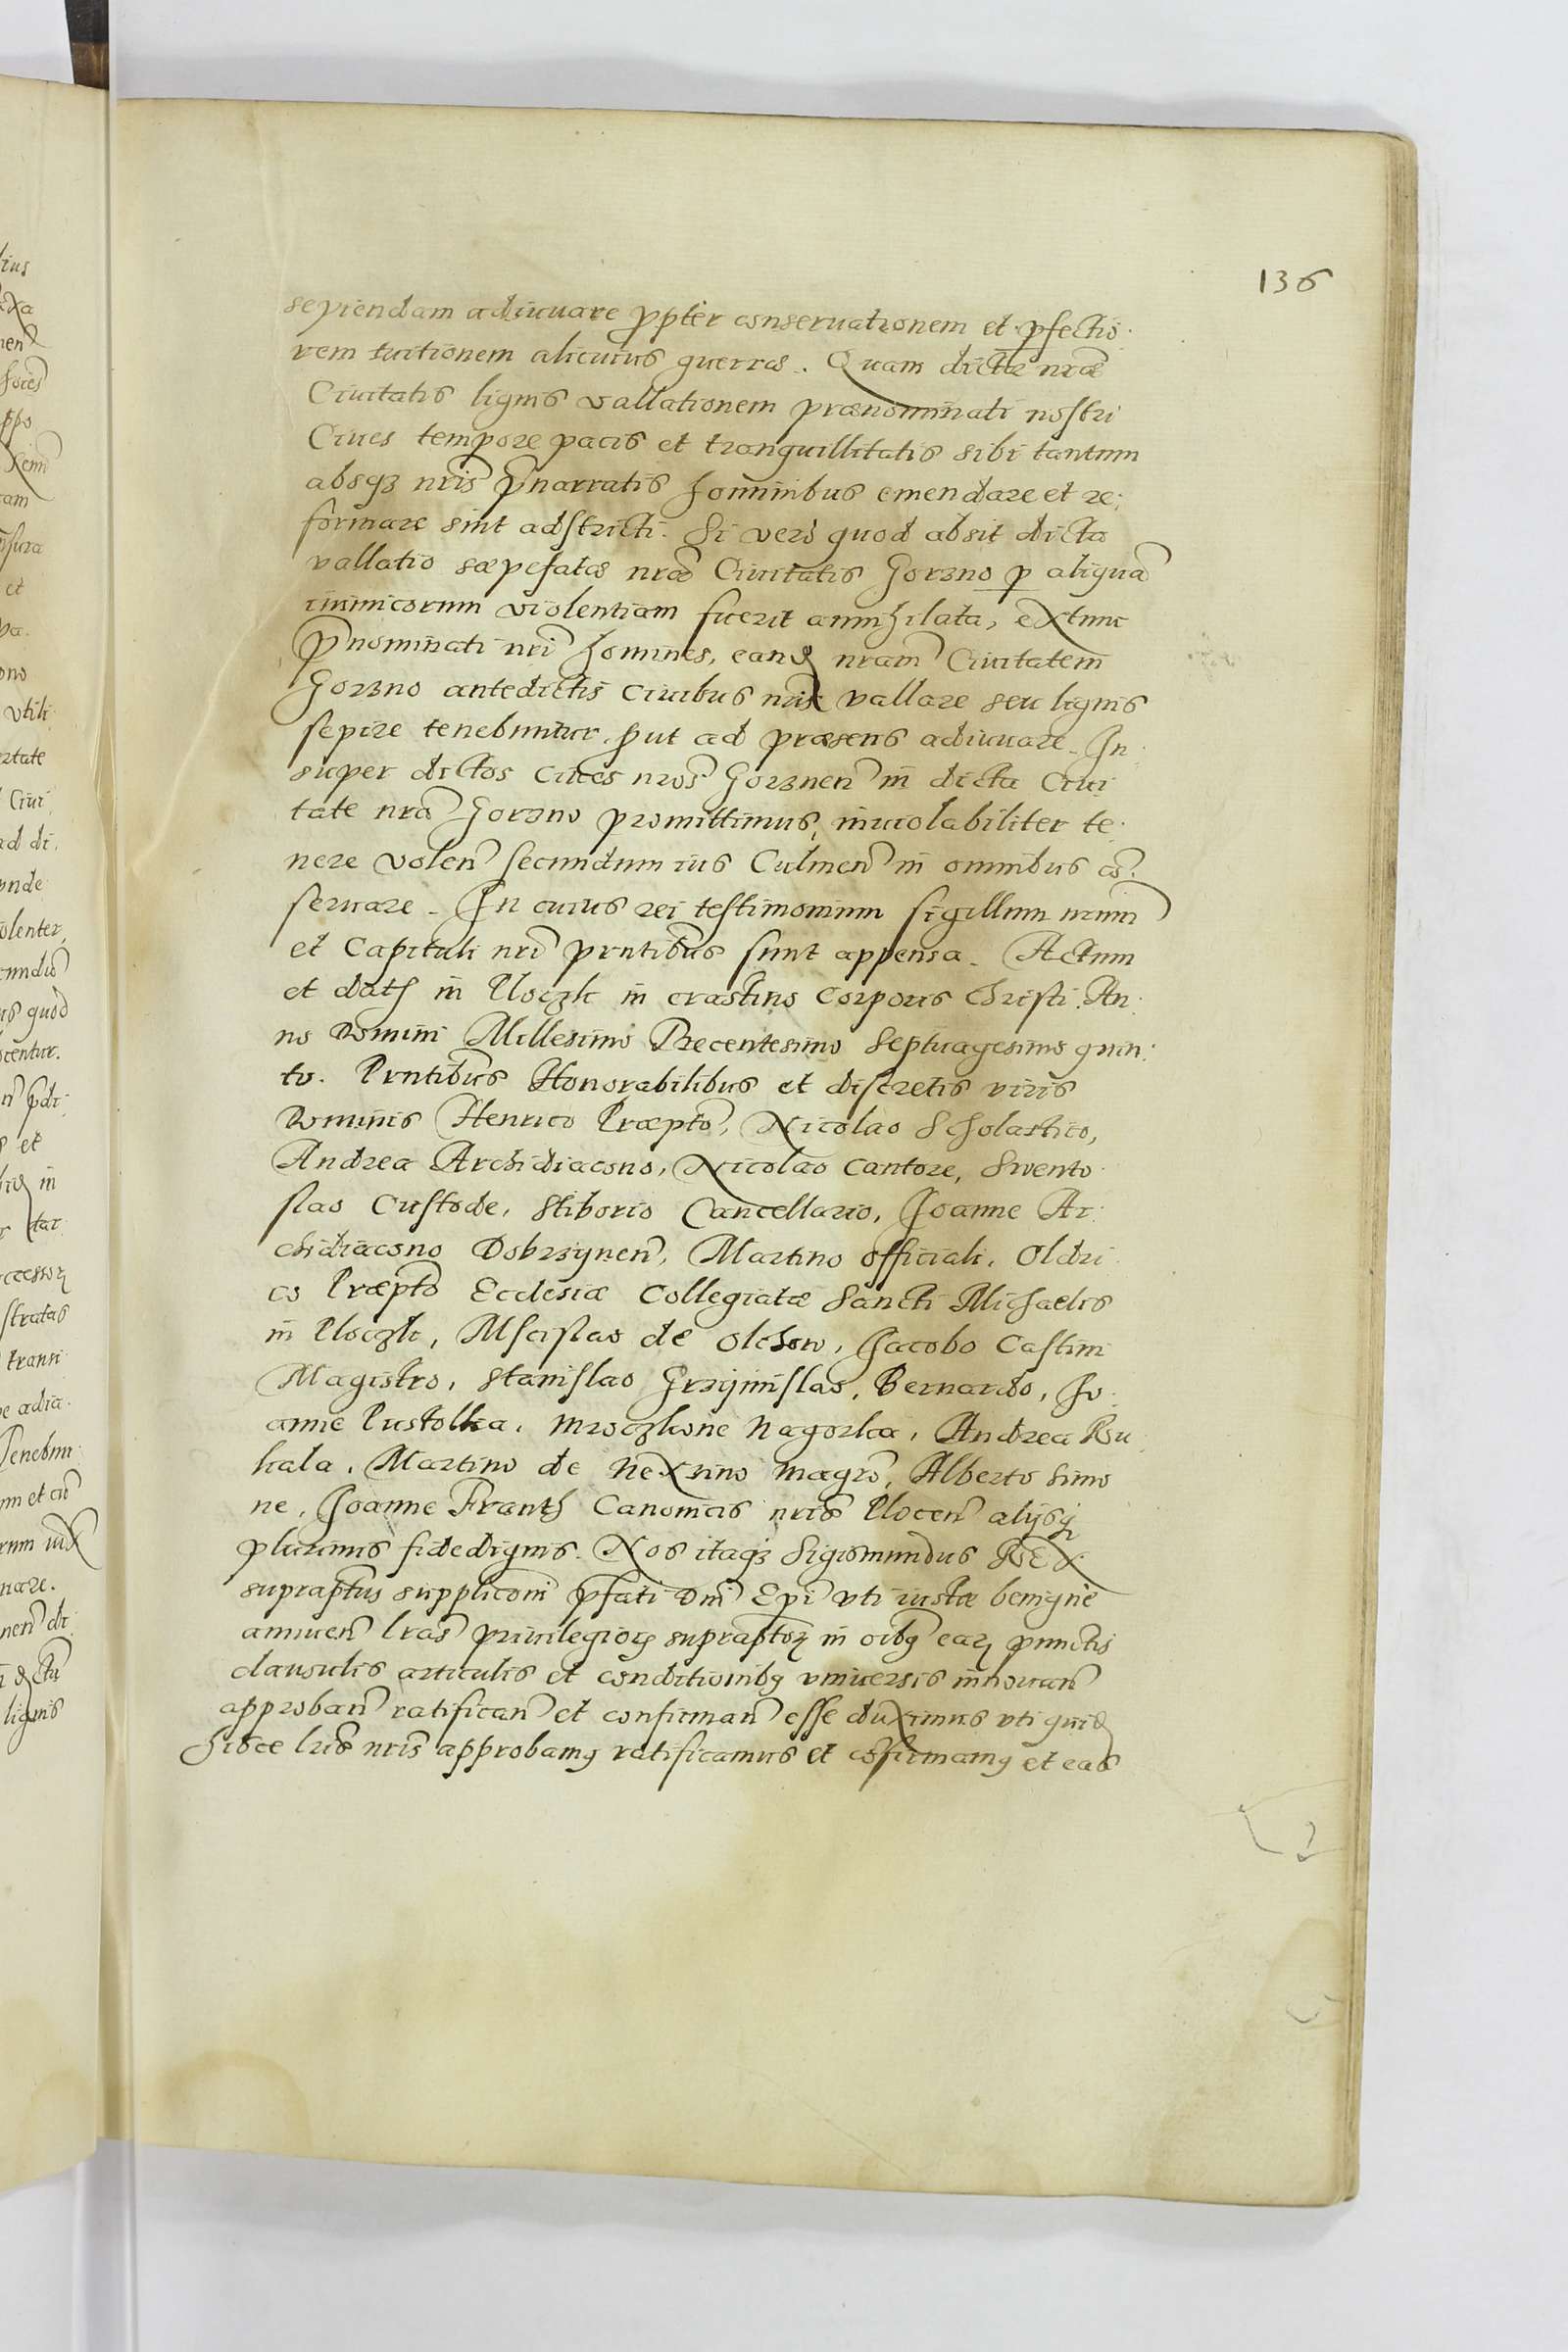 136
sepiendam adiuuare ꝓpter conseruationem et ꝑfectio-
rem tuitionem alicuius guerræ. Quam dictæ nr̃æ
Ciuitatis lignis vallationem prænominati nostri
Ciues tempore pacis et tranquillitatis sibi tantum
absqꝫ nr̃is p̃narratis hominibus emendare et re-
formare sint adstricti. Si vero quod absit dicta
vallatio sæpefatæ nr̃æ Ciuitatis Gorzno ꝑ aliquã
inimicorum violentiam fuerit annihilata, extunc
p̃nominati nr̃i homines, eand nram̃ Ciuitatem
Gorzno antedictis ciuibus nr̃is vallare seu lignis
sepire tenebuntur, ꝓut ad præsens adiuuare. In-
super dictos ciues nros̃ Gorznen̄ in dicta Ciui
tate nrã Gorzno promittimus, inuiolabiliter te-
nere volen̄ secundum ius Culmen̄ in omnibus cõ-
seruare. In cuius rei testimonium sigillum nrum̃
et Capituli nr̃i pr̃ntibus sunt appensa. Actum
et dat in Ploczk in crastino Corporis Christi. An-
no Domini Millesimo Trecentesimo Septuagesimo quin-
to. Pr̃ntibus Honorabilibus et discretis viris
Dominis Henrico Præpto͂, Nicolao Scholastico,
Andrea Archidiacono, Nicolao Cantore, Swento
slao Custode, Stiborio Cancellario, Joanne Ar-
chidiacono Dobrzynen̄, Martino officiali, Oldri
co Præpto͂ Ecclesiæ Collegiatæ Sancti Michaelis
in Ploczk, Mscislao de Olchow, Jacobo Castim
Magistro, Stanislao Grzymislao, Bernardo, Jo-
anne Pustolka, Mroczkone Nagorka, Andrea Ru
kala, Martino de Nexino Magrõ, Alberto Simo
ne, Joanne Frantz Canonicis nris̃ Plocen̄ alijsq
plurimis fidedignis. Nos itaqꝫ Sigismundus Rex
supraptus̃ supplicom̃ p̃fati Dnĩ Epĩ vti iustæ benigne
annuen̄ lras̃ priuilegior supraptor̃ in oibꝫ ear punctis
clausulis articulis et conditionibꝫ vniuersis innouan̄
approban̄ ratifican̄ et confirman̄ esse duximus vti quid
hisce lris̃ nris̃ approbamꝰ ratificamus et cõfirmamꝰ et eas